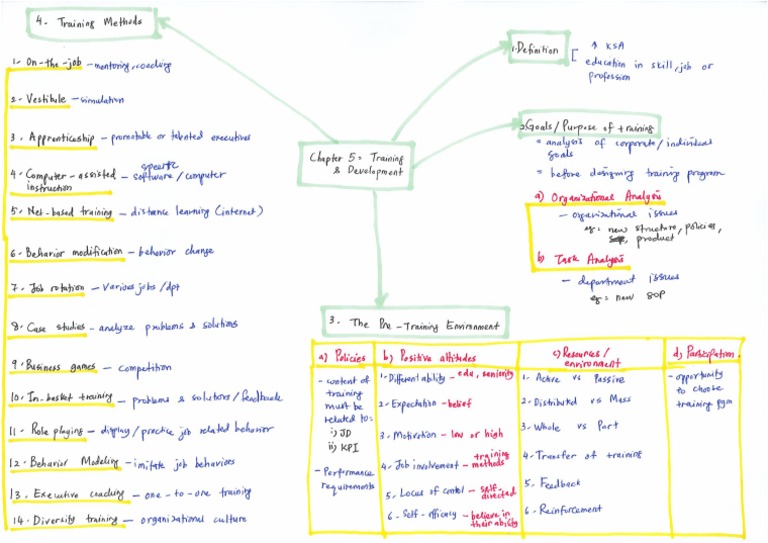 4. Training Methods
1. On-the-job - mentoring, coaching
2. Vestibule - simulation
3. Apprenticeship - promotable or talented executives
4. Computer-assisted instruction - specific software/computer
5. Net-based training - distance learning (internet)
6. Behavior modification - behavior change
7. Job rotation - Various jobs/dpt
8. Case studies - analyze problems & solutions
9. Business games - competition
10. In-basket training - problems & solutions/feedback
11. Role playing - display/practice job related behavior
12. Behavior Modeling - imitate job behaviors
13. Executive coaching - one-to-one training
14. Diversity training - organizational culture
Chapter 5: Training
& Development
1. Definition
↑ KSA
education in skill, job or
profession
2. Goals/Purpose of training
= analysis of corporate/individual
goals
= before designing training program
a) Organizational Analysis
- organizational issues
eg: new structure, policies,
product
b) Task Analysis
- department issues
eg: new SOP
3. The Pre-Training Environment
a) Policies
- content of
training
must be
related to:
i) JD
ii) KPI
- Performance
requirements
b) Positive attitudes
1. Different ability - edu, seniority
2. Expectation - belief
3. Motivation - low or high
4. Job involvement - training methods
5. Locus of control - self-directed
6. Self-efficacy - believe in their ability
c) Resources/
environment
1. Active vs Passive
2. Distributed vs Mass
3. Whole vs Part
4. Transfer of training
5. Feedback
6. Reinforcement
d) Participation
- opportunity
to choose
training pgm